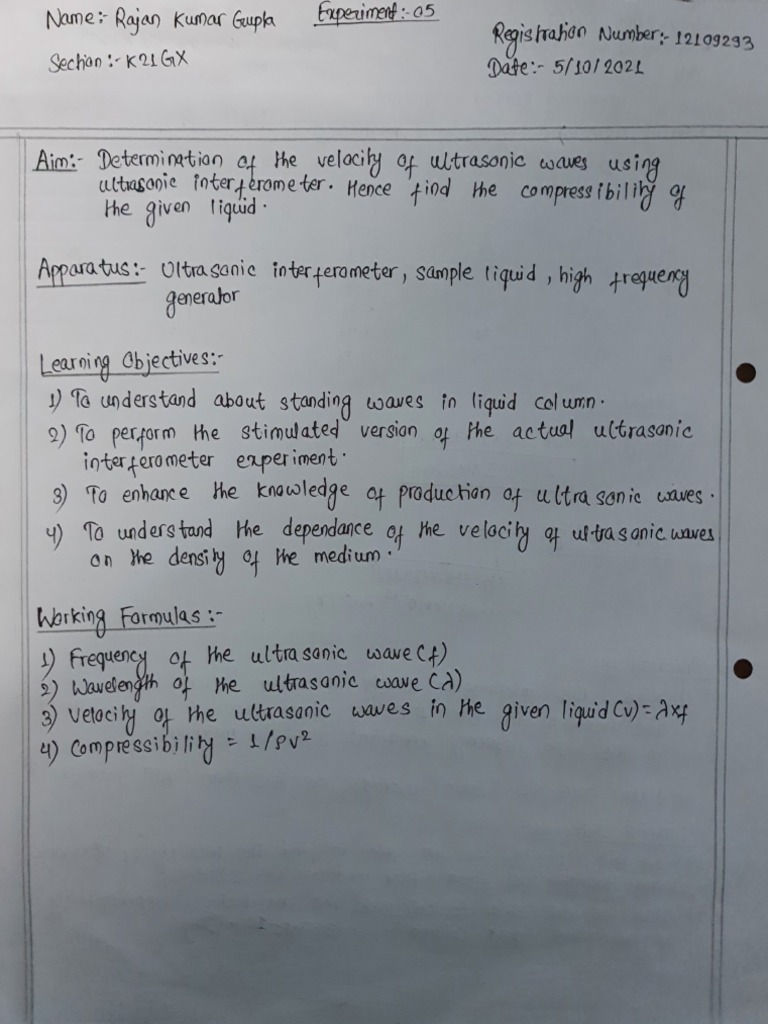 Name:- Rajan Kumar Gupta Experiment:- 05
Registration Number:- 12109293
Section:- K21GX
Date:- 5/10/2021
Aim:- Determination of the velocity of ultrasonic waves using
ultrasonic interferometer. Hence find the compressibility of
the given liquid.
Apparatus:- Ultrasonic interferometer, sample liquid, high frequency
generator
Learning Objectives:-
1) To understand about standing waves in liquid column.
2) To perform the stimulated version of the actual ultrasonic
interferometer experiment.
3) To enhance the knowledge of production of ultrasonic waves.
4) To understand the dependance of the velocity of ultrasonic waves
on the density of the medium.
Working Formulas:-
1) Frequency of the ultrasonic wave (f)
2) Wavelength of the ultrasonic wave (λ)
3) Velocity of the ultrasonic waves in the given liquid (v) = λxf
4) Compressibility = 1/ρv²